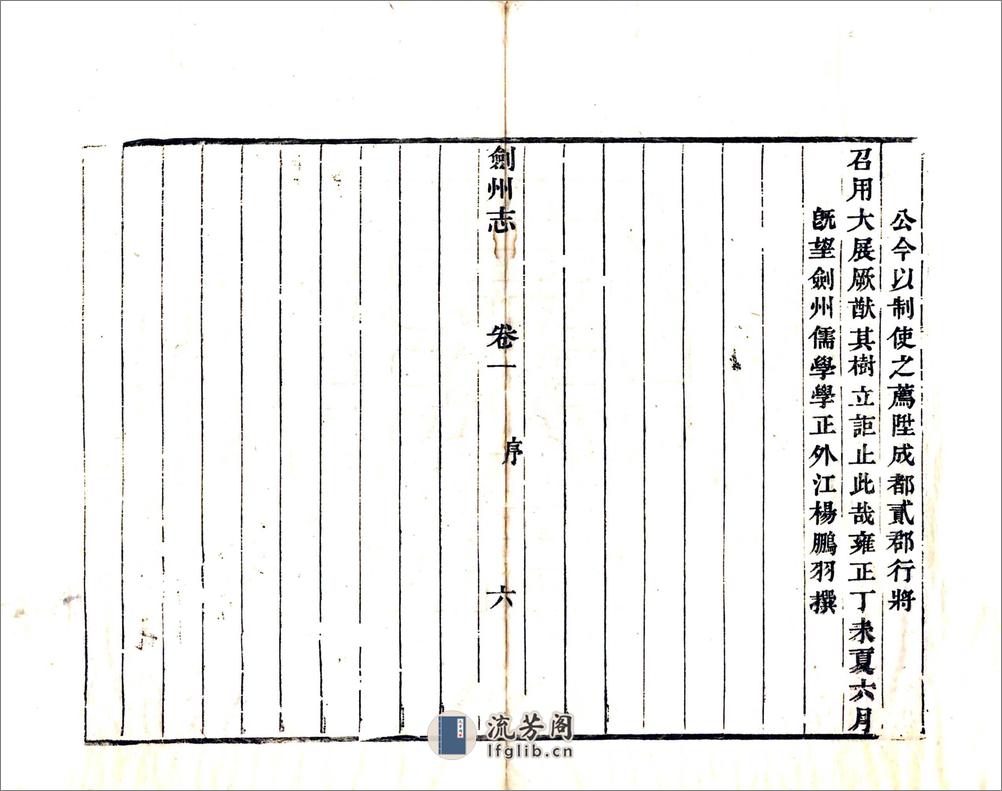 公今以制使之薦陞成都貳郡行將
召用大展厥猷其樹立詎止此哉雍正丁未夏六月
既望劍州儒學學正外江楊鵬羽撰
劍州志 卷一 序 六
流芳阁
lfglib.cn